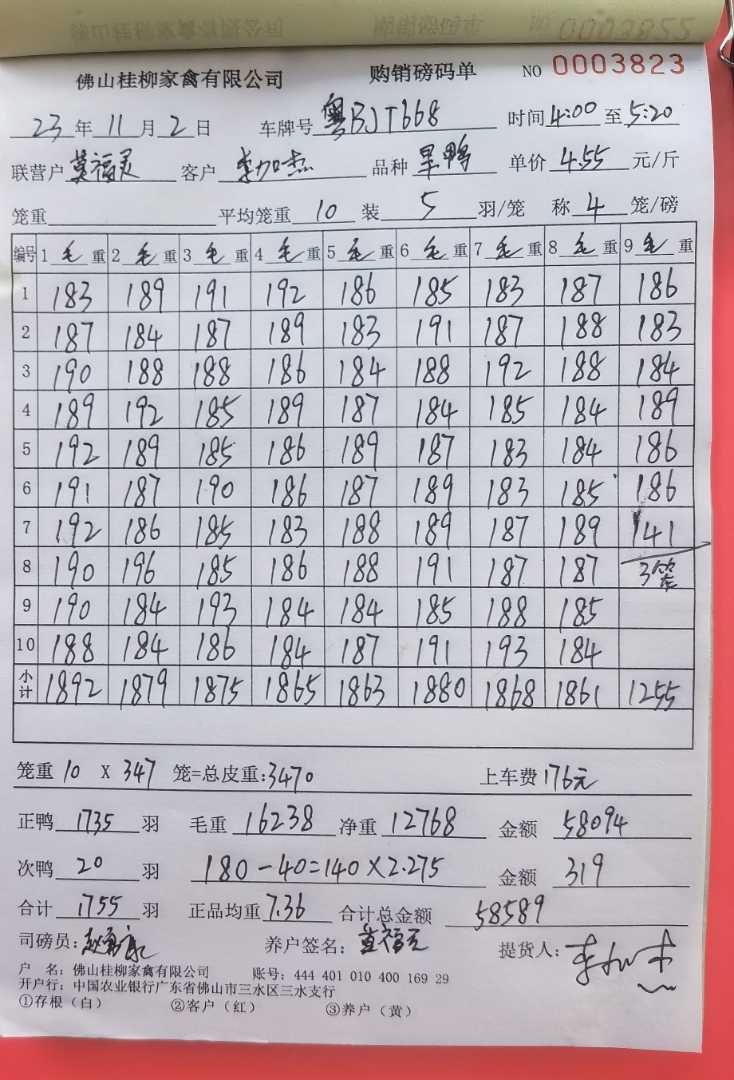 佛山桂柳家禽有限公司 购销磅码单 NO 0003823
23年11月2日 车牌号 粤BJT668 时间4:00至5:20
联营户 莫福灵 客户 李加杰 品种 旱鸭 单价 4.55 元/斤
笼重 平均笼重 10 装 5 羽/笼 称 4 笼/磅
编号 1 毛 重 2 毛 重 3 毛 重 4 毛 重 5 毛 重 6 毛 重 7 毛 重 8 毛 重 9 毛 重
1 183 189 191 192 186 185 183 187 186
2 187 184 187 189 183 191 187 188 183
3 190 188 188 186 184 188 192 188 184
4 189 192 185 189 187 184 185 184 189
5 192 189 185 186 189 187 183 184 186
6 191 187 190 186 187 189 183 185 186
7 192 186 185 183 188 189 187 189 141
8 190 196 185 186 188 191 187 187 3笼
9 190 184 193 184 184 185 188 185
10 188 184 186 184 187 191 193 184
小计 1892 1879 1875 1865 1863 1880 1868 1861 1255
笼重 10 X 347 笼=总皮重:3470 上车费 176元
正鸭 1735 羽 毛重 16238 净重 12768 金额 58094
次鸭 20 羽 180-40=140×2.275 金额 319
合计 1755 羽 正品均重 7.36 合计总金额 58589
司磅员: 养户签名: 莫福灵 提货人: 李加杰
户 名: 佛山桂柳家禽有限公司 账号: 444 401 010 400 169 29
开户行: 中国农业银行广东省佛山市三水区三水支行
①存根（白） ②客户（红） ③养户（黄）